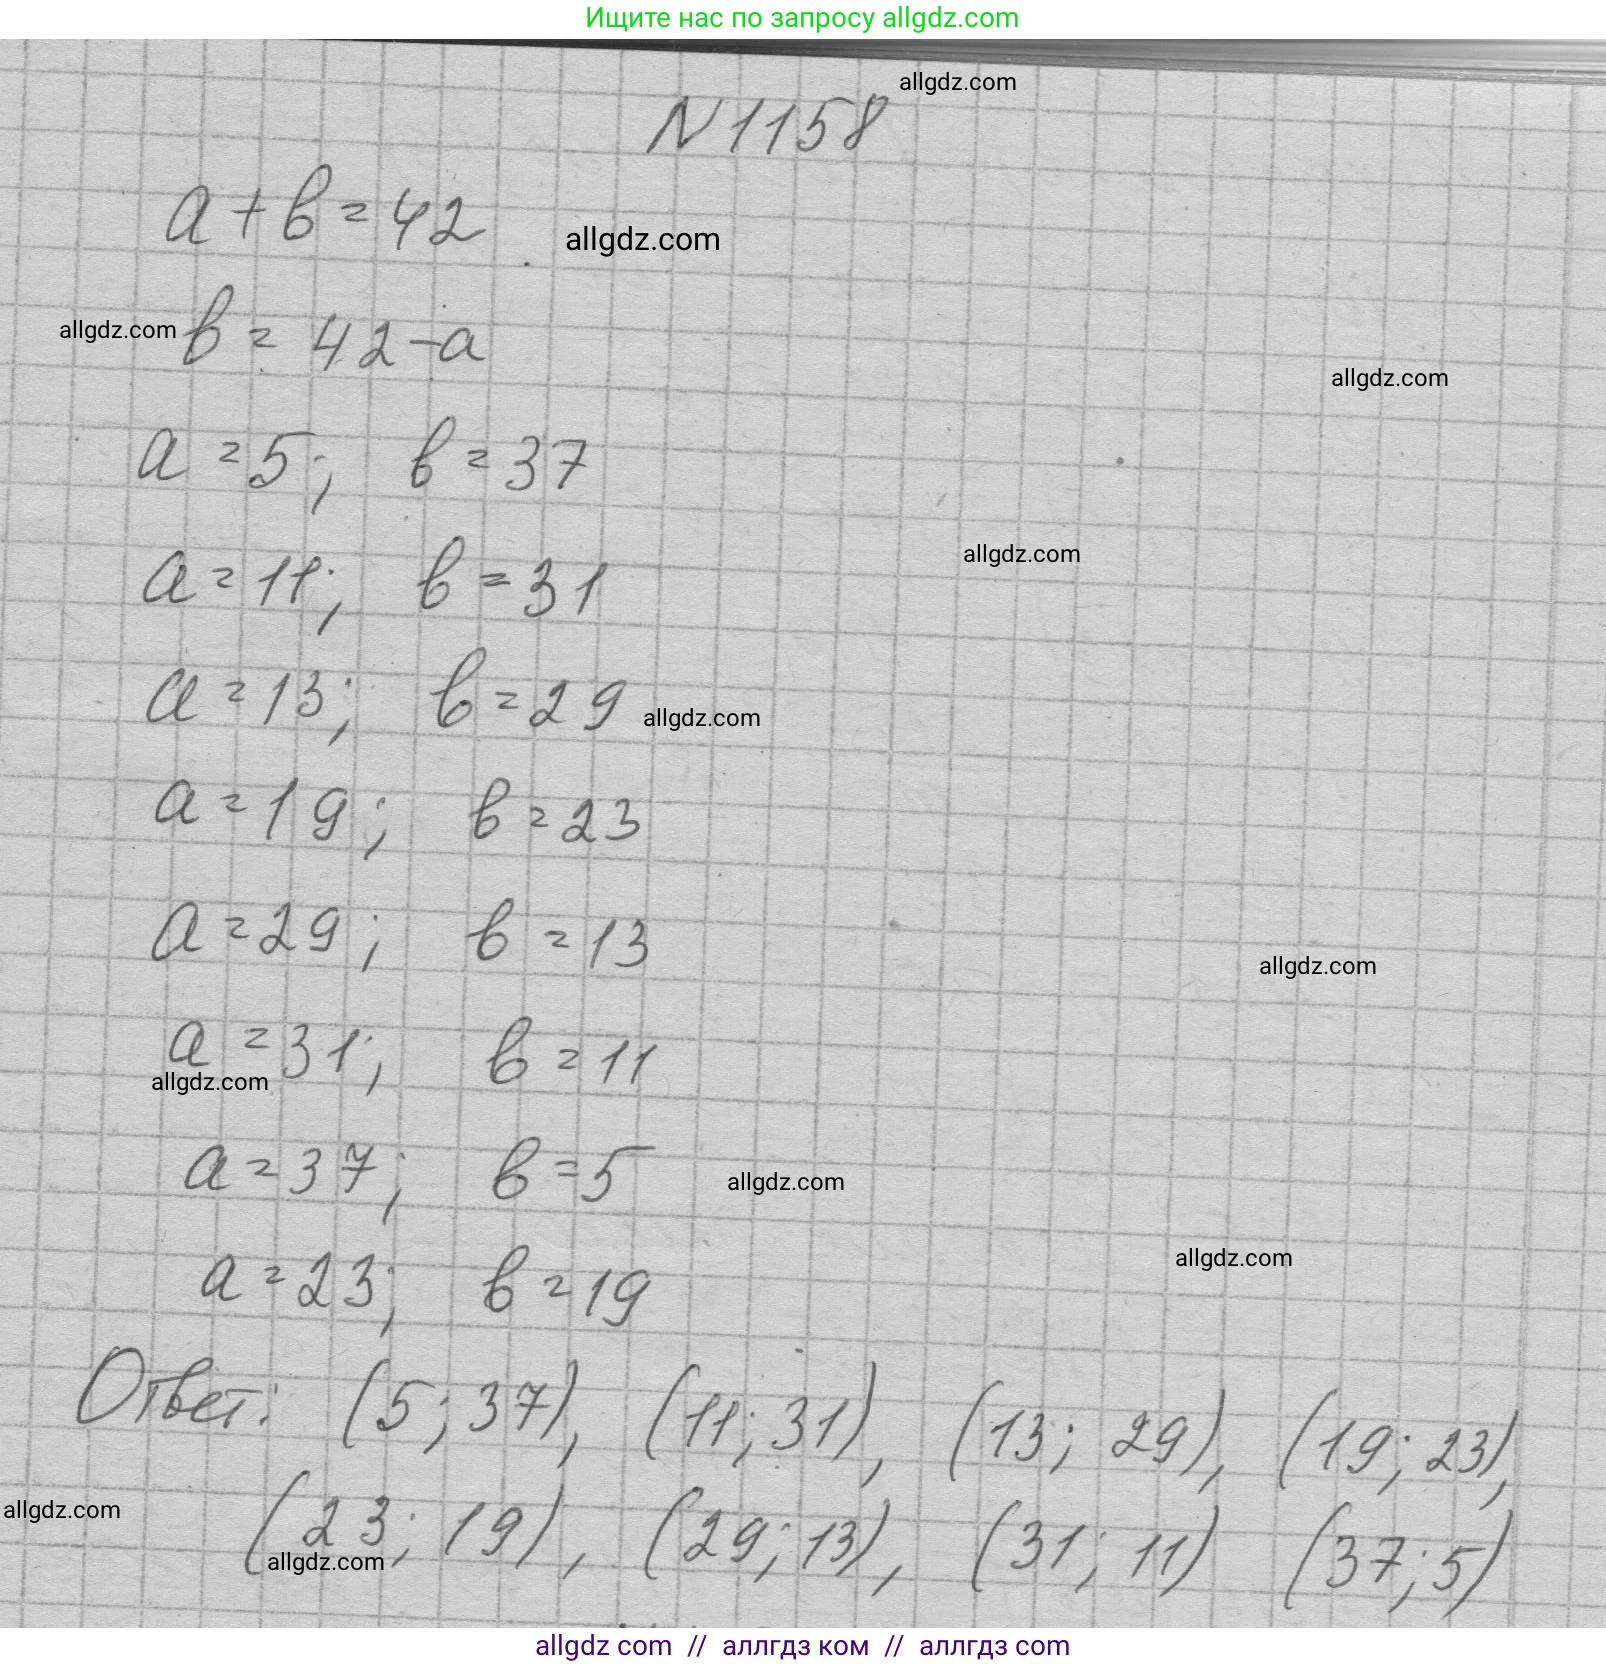 Ищите нас по запросу allgdz.com
allgdz.com
N1158
a+в=42
allgdz.com
allgdz.com
в=42-a
allgdz.com
a=5; в=37
allgdz.com
a=11; в=31
a=13; в=29
allgdz.com
a=19; в=23
a=29; в=13
allgdz.com
a=31; в=11
allgdz.com
a=37; в=5
allgdz.com
allgdz.com
a=23; в=19
Ответ: (5; 37), (11; 31), (13; 29), (19; 23),
allgdz.com
(23; 19), (29; 13), (31; 11) (37; 5)
allgdz.com
allgdz com // аллгдз ком // аллгдз com